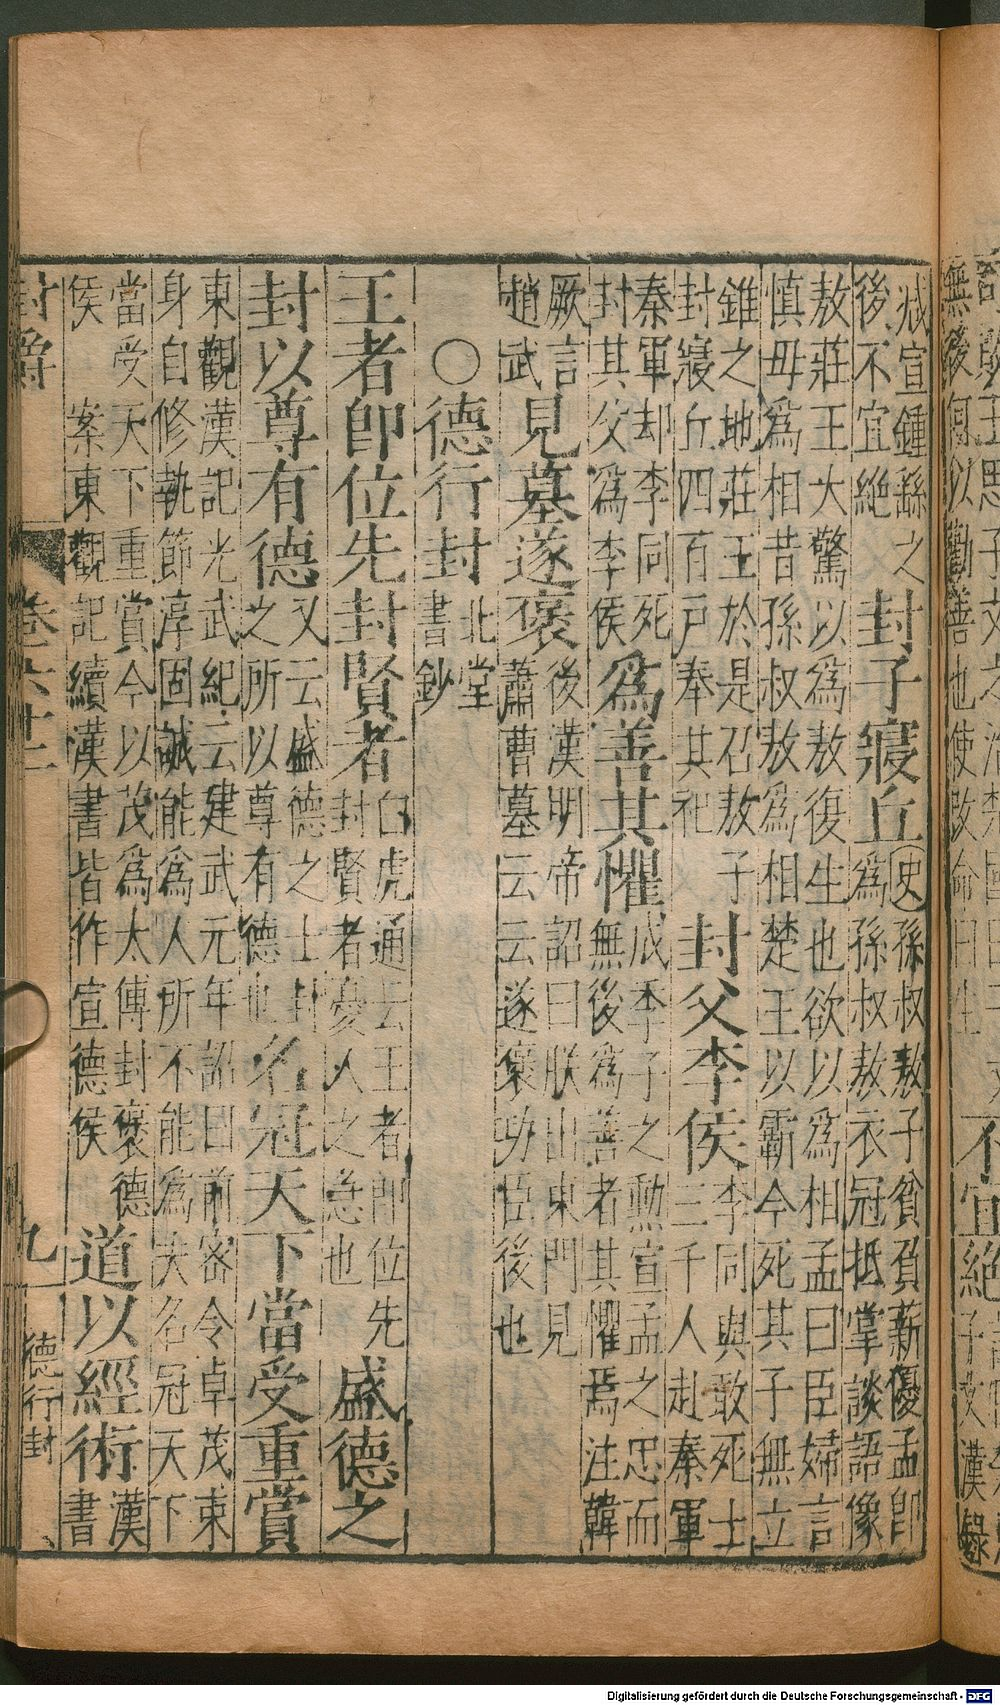 臧宣鍾繇之
後不宜絕
封子寢丘
史孫叔敖子貧負薪優孟卽
爲孫叔敖衣冠抵掌談語像
敖莊王大驚以爲敖復生也欲以爲相孟曰臣婦言
慎毋爲相昔孫叔敖爲相楚王以霸今死其子無立
錐之地莊王於是召敖子
封寢丘四百戶奉其祀
封父李侯
李同與敢死士
三千人赴秦軍
秦軍却李同死
封其父爲李侯
爲善其懼
成季子之勳宣孟之忠而
無後爲善者其懼焉注韓
厥言
趙武
見墓遂褒
後漢明帝詔曰朕出東門見
蕭曹墓云云遂褒功臣後也
○德行封
北堂
書鈔
王者卽位先封賢者
白虎通云王者卽位先
封賢者憂人之急也
盛德之
封以尊有德
又云盛德之士封
之所以尊有德也
名冠天下當受重賞
東觀漢記光武紀云建武元年詔曰前密令卓茂束
身自修執節淳固誠能爲人所不能爲夫名冠天下
當受天下重賞今以茂爲太傅封褒德
侯　案東觀記續漢書皆作宣德侯
道以經術
漢
書
封爵
卷六十一
九
德行封
無後何以勸善也使改命曰生
不宜絕
子文漢錄
Digitalisierung gefördert durch die Deutsche Forschungsgemeinschaft - DFG